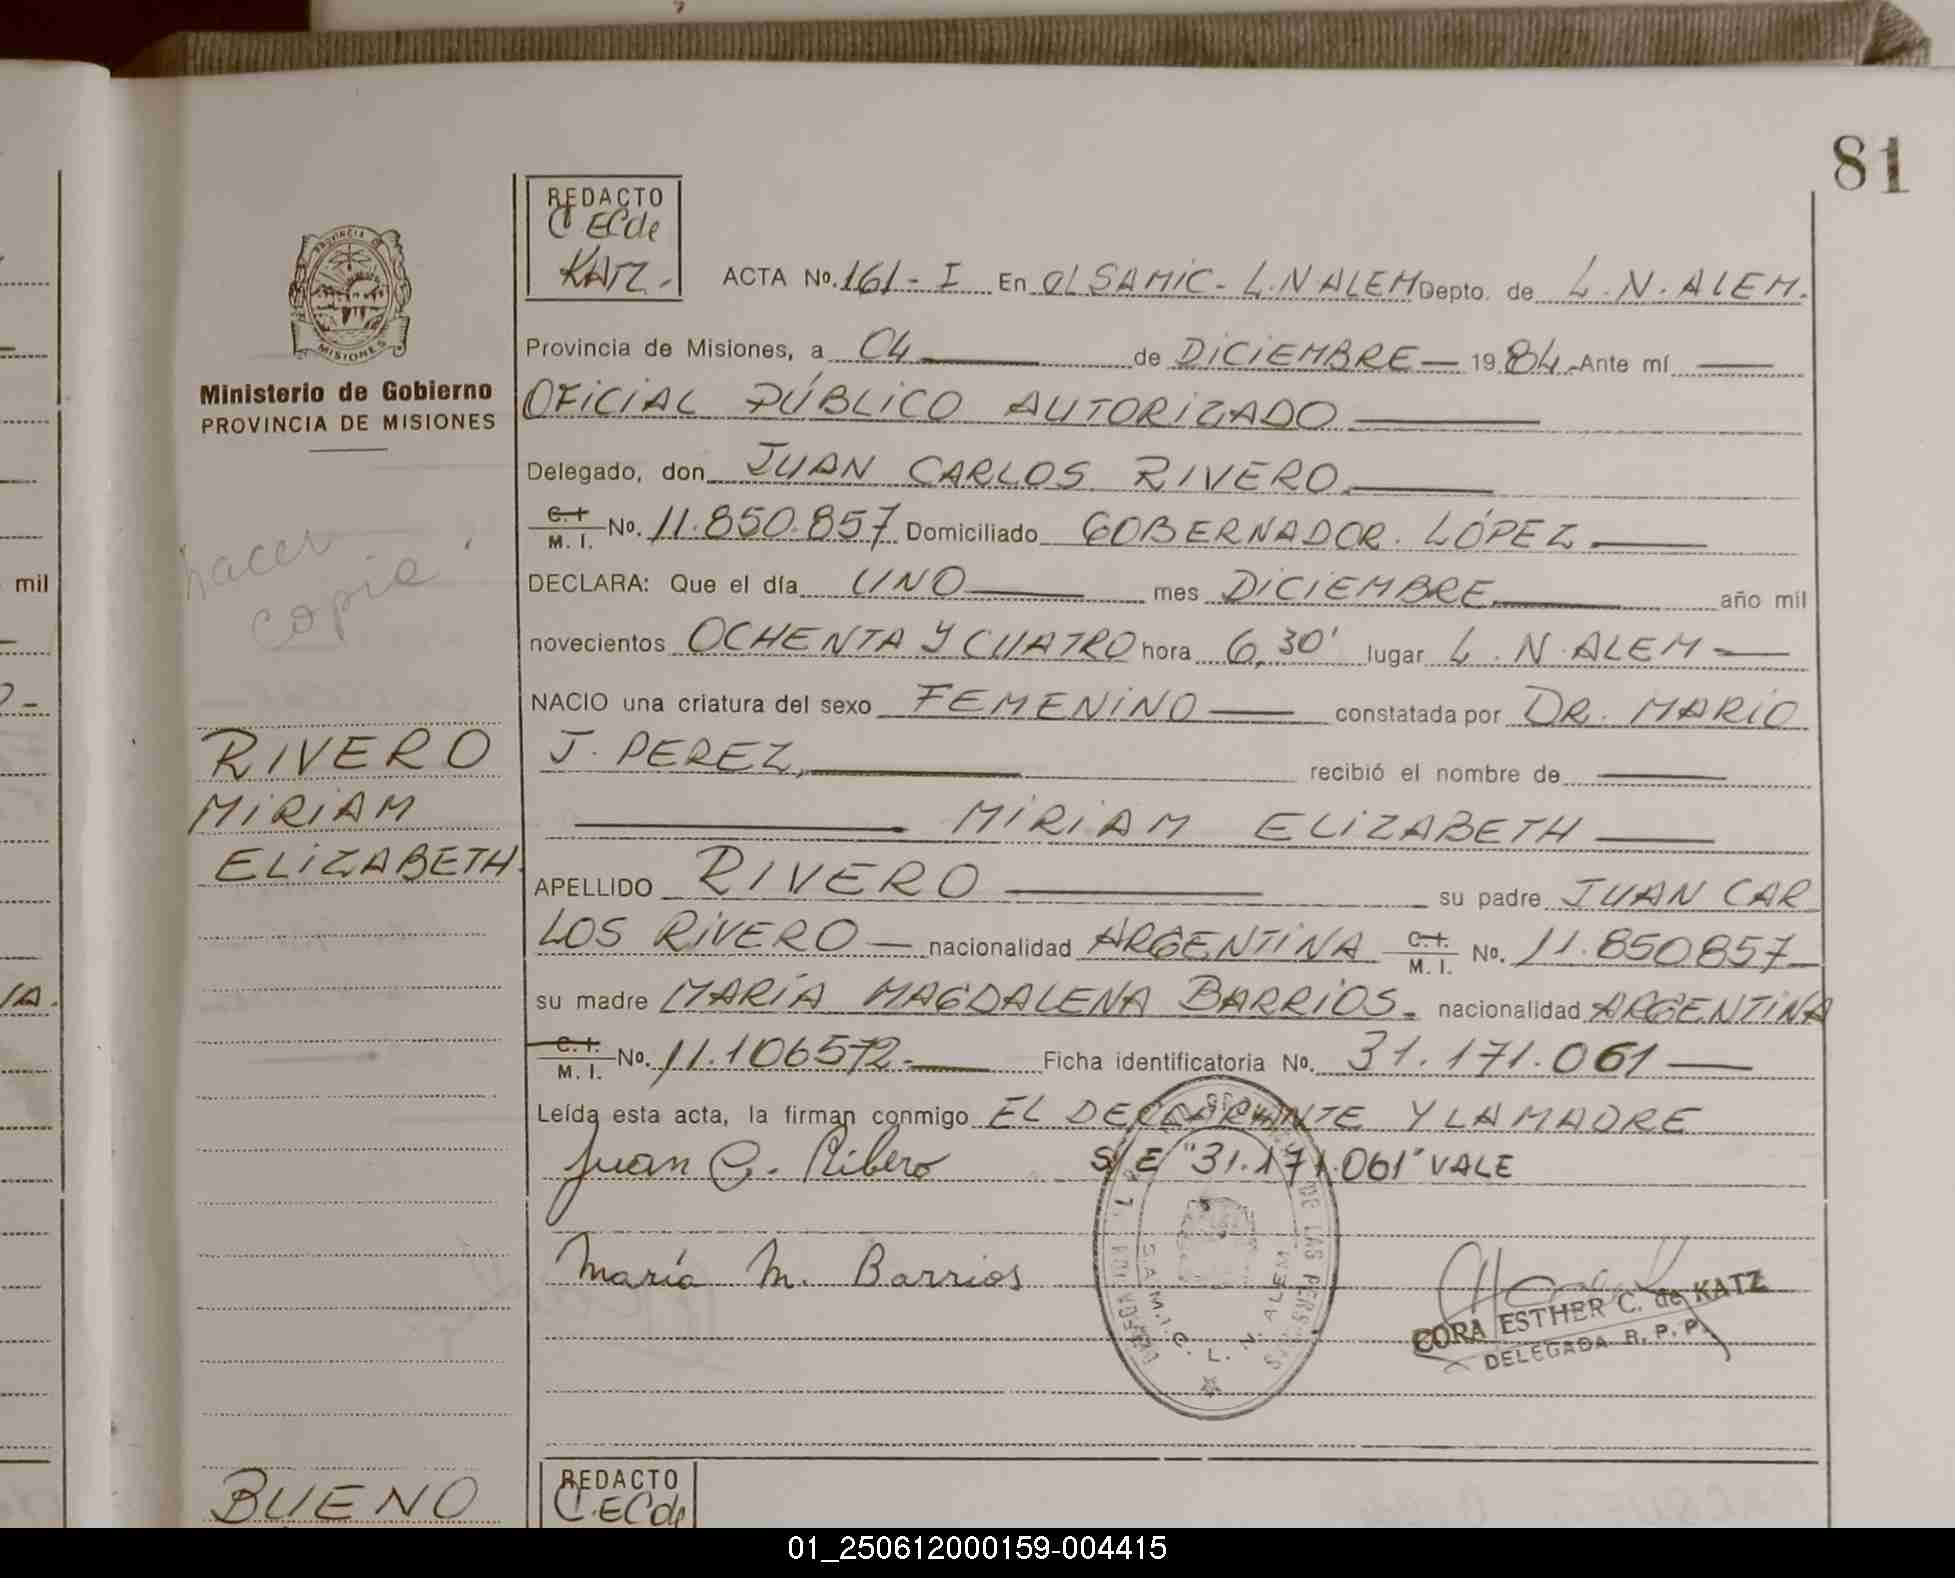 81
REDACTO
C ECde
KATZ.-
ACTA No. 161 - I En el SAMIC - L.N ALEM Depto. de L. N. ALEM.
PROVINCIA DE
MISIONES
Ministerio de Gobierno
PROVINCIA DE MISIONES
Provincia de Misiones, a 04 de DICIEMBRE 1984. Ante mí
OFICIAL PÚBLICO AUTORIZADO
Delegado, don JUAN CARLOS RIVERO
C. I.
M. I. No. 11.850.857 Domiciliado GOBERNADOR. LÓPEZ
hacer
copia
DECLARA: Que el día UNO mes DICIEMBRE año mil
novecientos OCHENTA Y CUATRO hora 6,30' lugar L. N. ALEM
NACIO una criatura del sexo FEMENINO constatada por DR. MARIO
J. PEREZ, recibió el nombre de
MIRIAM ELIZABETH
RIVERO
MIRIAM
ELIZABETH.
APELLIDO RIVERO su padre JUAN CAR
LOS RIVERO nacionalidad ARGENTINA C. I. M. I. No. 11.850857
su madre MARÍA MAGDALENA BARRIOS. nacionalidad ARGENTINA
C. I.
M. I. No. 11.106572- Ficha identificatoria No. 31.171.061
Leída esta acta, la firman conmigo EL DECLARANTE Y LA MADRE
Juan C. Ribero S/E "31.171.061" VALE
María M. Barrios
DE LAS PERSONAS
S.A.M.I.C. L. N. ALEM
CORA ESTHER C. de KATZ
DELEGADA R. P. P.
BUENO
REDACTO
C.ECde
mil
01_250612000159-004415